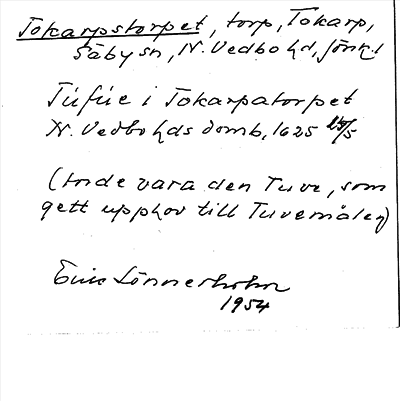 Tokarpstorpet, torp, Tokarp,
Säby sn, N. Vedbo hd, Jönk. l
Túfúe i Tokarpatorpet
N. Vedbo hds domb. 1625 25/5
(torde vara den Tuve, som
gett upphov till Tuvemålen)
Eric Lönnerholm
1954